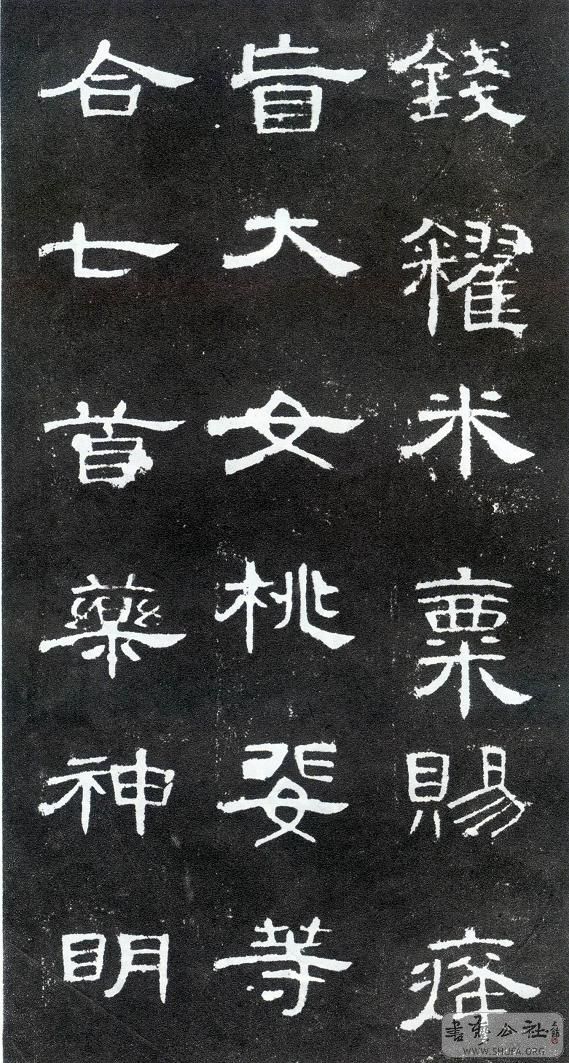 錢糴米粟賜瘽
盲大女桃婓等
合七首藥神明
書藝公社
WWW.SHUFA.ORG